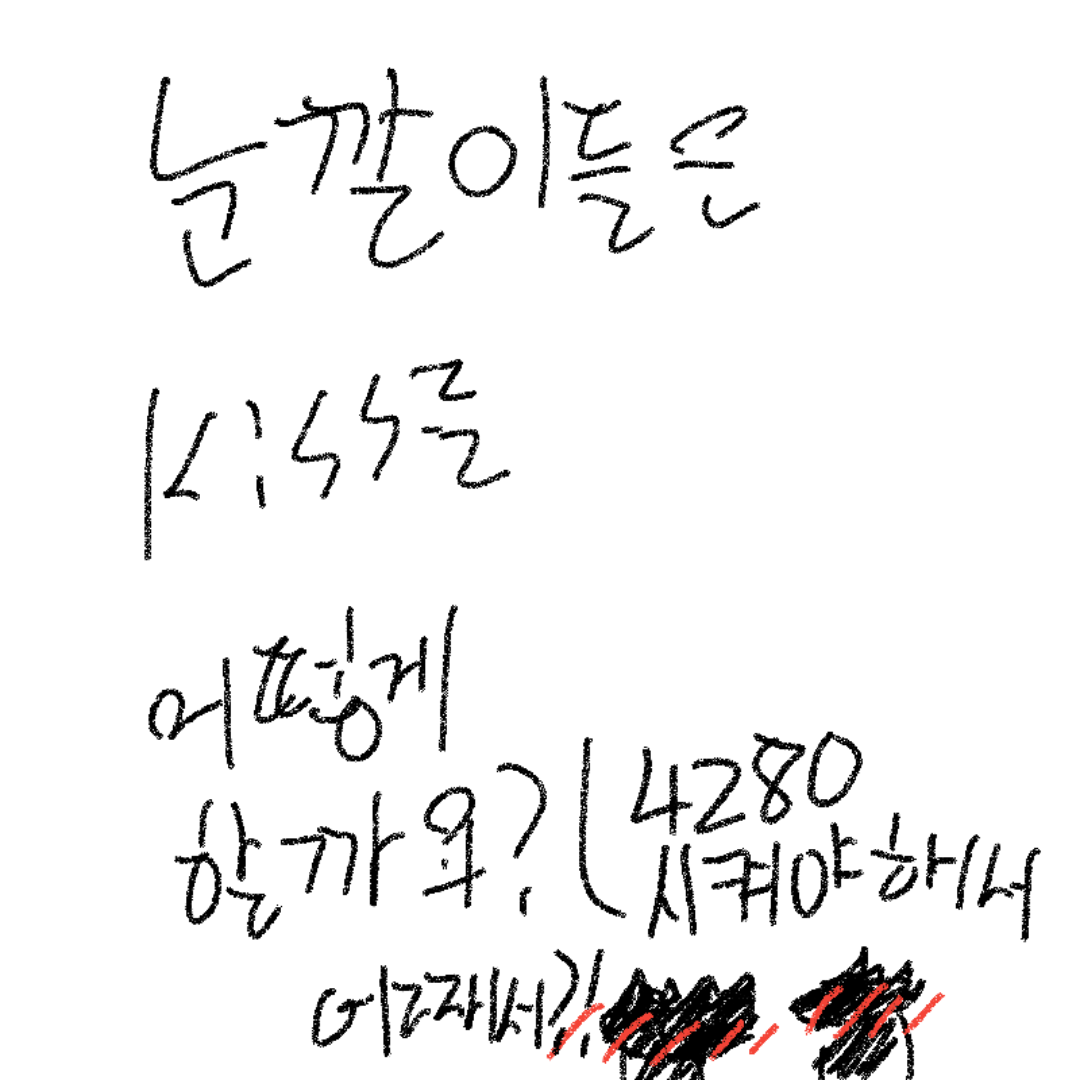 눈깔이들은
kiss를
어떻게
할까요?
4280
시켜야해서
어그래서?!